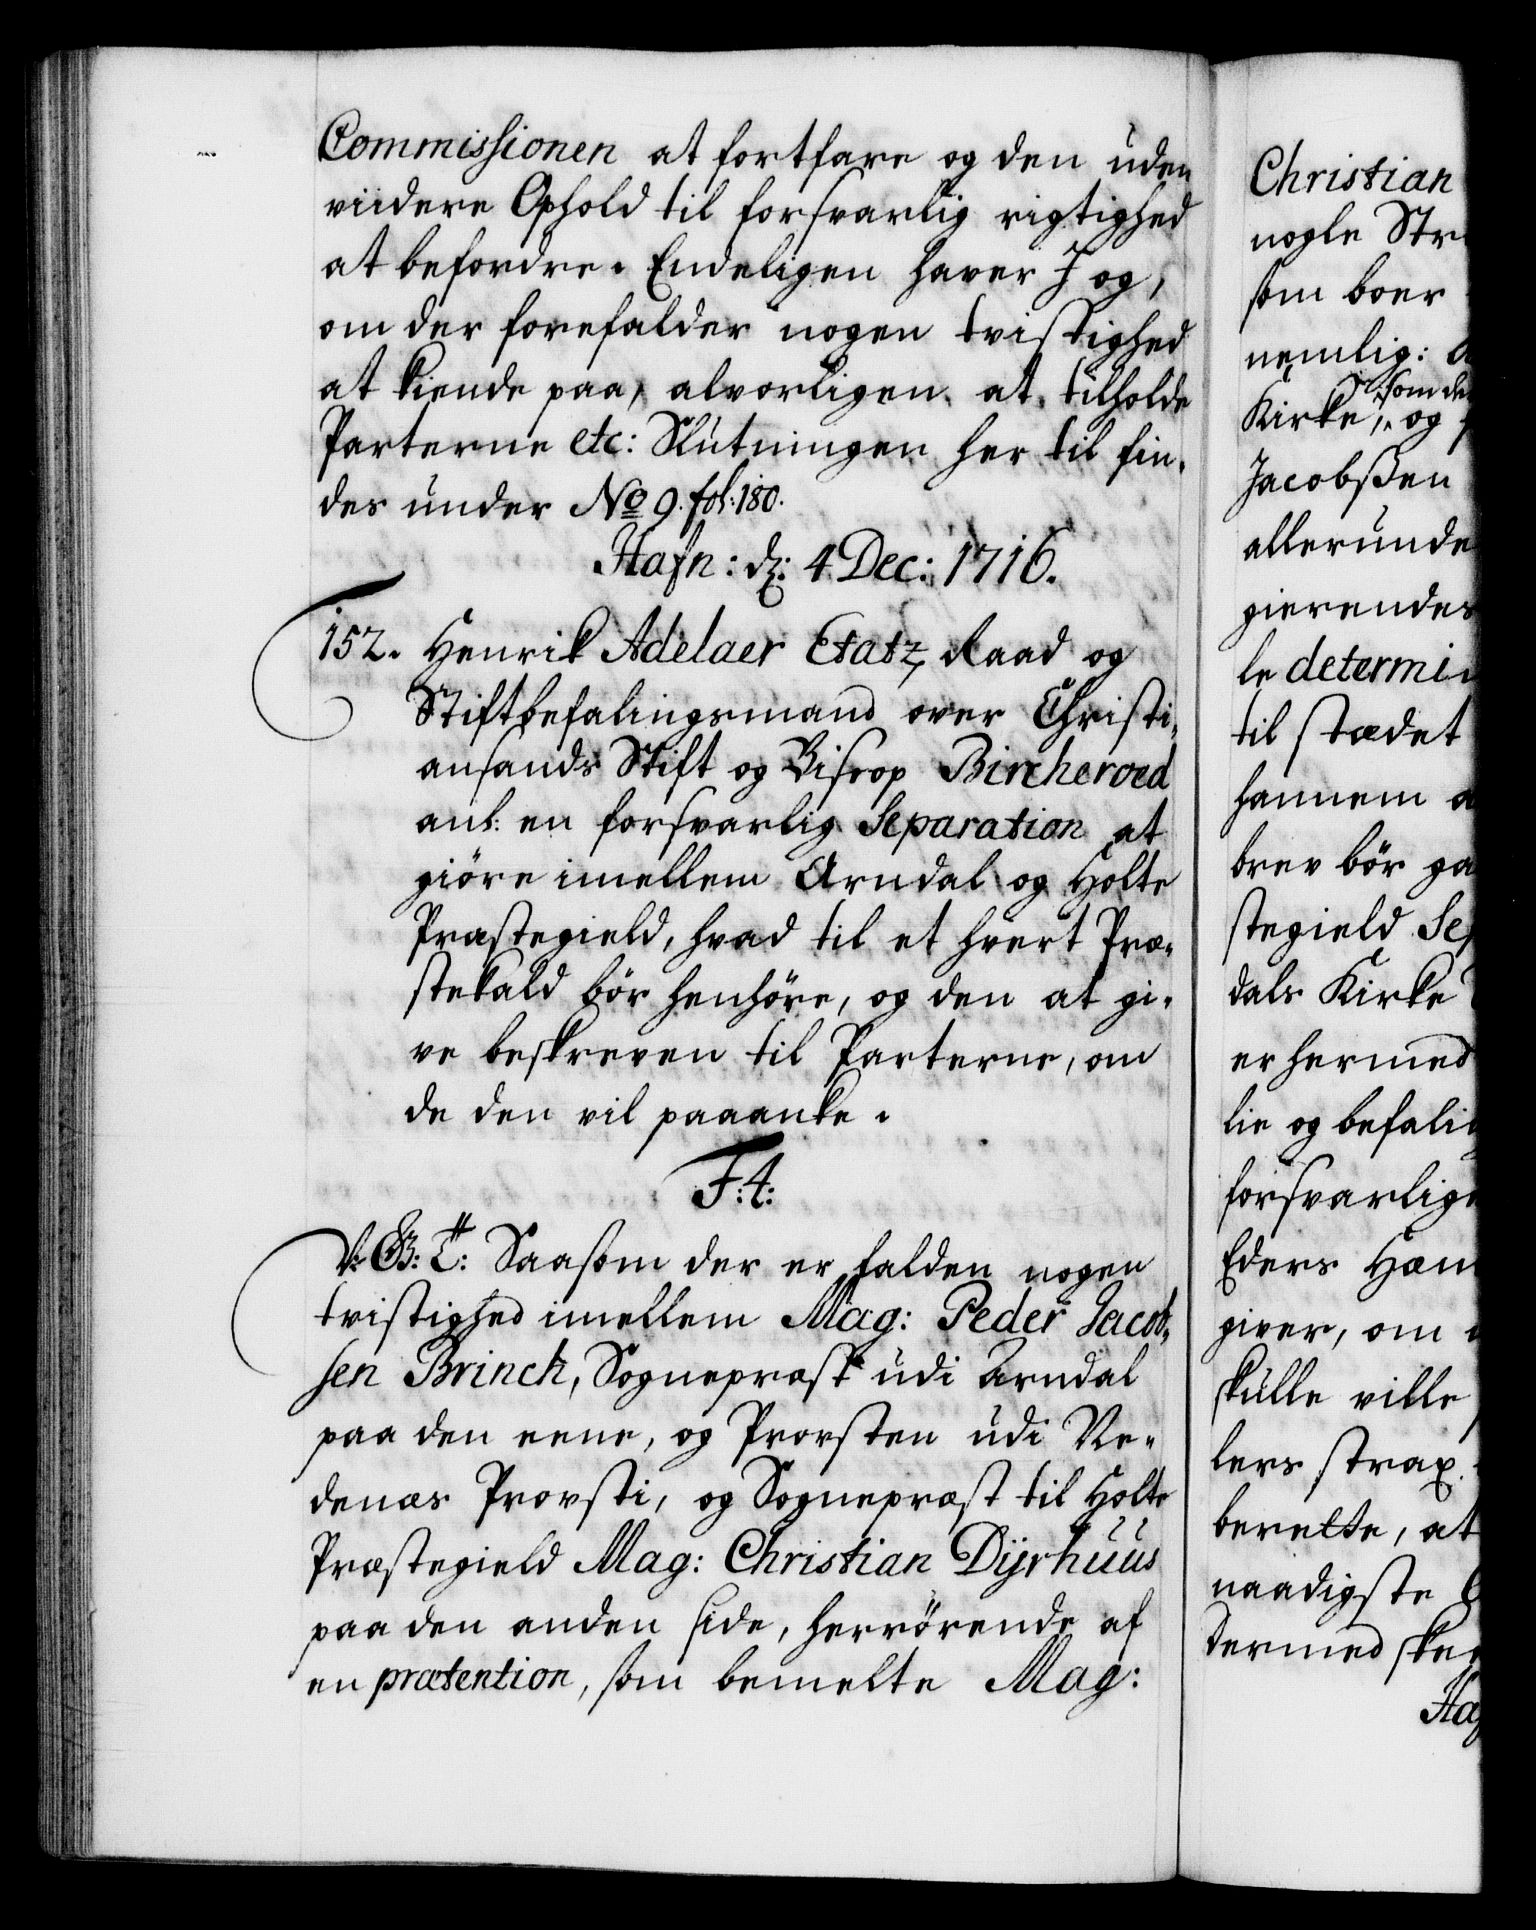 Commissionen at fortfare og den uden
viidere Ophold til forsvarlig rigtighed
at befordre. Endeligen haver J og,
om der forefalder nogen tvistighed
at kiende paa, alvorligen at tilholde
Parterne etc: Slutningen her til fin-
des under No 9. fol: 180.
Hafn: dZ: 4 Dec: 1716.
152. Henrik Adelaer Etatz Raad og
Stiftbefalingsmand over Christi-
ansands Stift og Biscop Bircheroed
anl: en forsvarlig Separation at
giöre imellem Arndal og Holte
Præstegield, hvad til et hvert Præ-
stekald bör henhöre, og den at gi-
ve beskreven til Parterne, om
de den vil paaanke.
F: 4:
V: G: T: Saasom der er falden nogen
tvistighed imellem Mag: Peder Jacob-
sen Brinch, Sognepræst udi Arndal
paa den eene, og Provsten udi Ne-
denæs Provsti, og Sognepræst til Holte
Præstegield Mag: Christian Dijrhuus
paa den anden side, herrörende af
en prætention, som bemelte Mag:
Christian
nogle
som boer
nemlig:
som
Kirke, og
Jacobsßen
allerunde
gierendes
le determi
til stædet
hannem
brev bör
stegield
dals Kirke
er hermed
lie og befali
forsvarlig
Eders
giver, om
skulle ville
lers strax
berette, at
naadigste
dermed